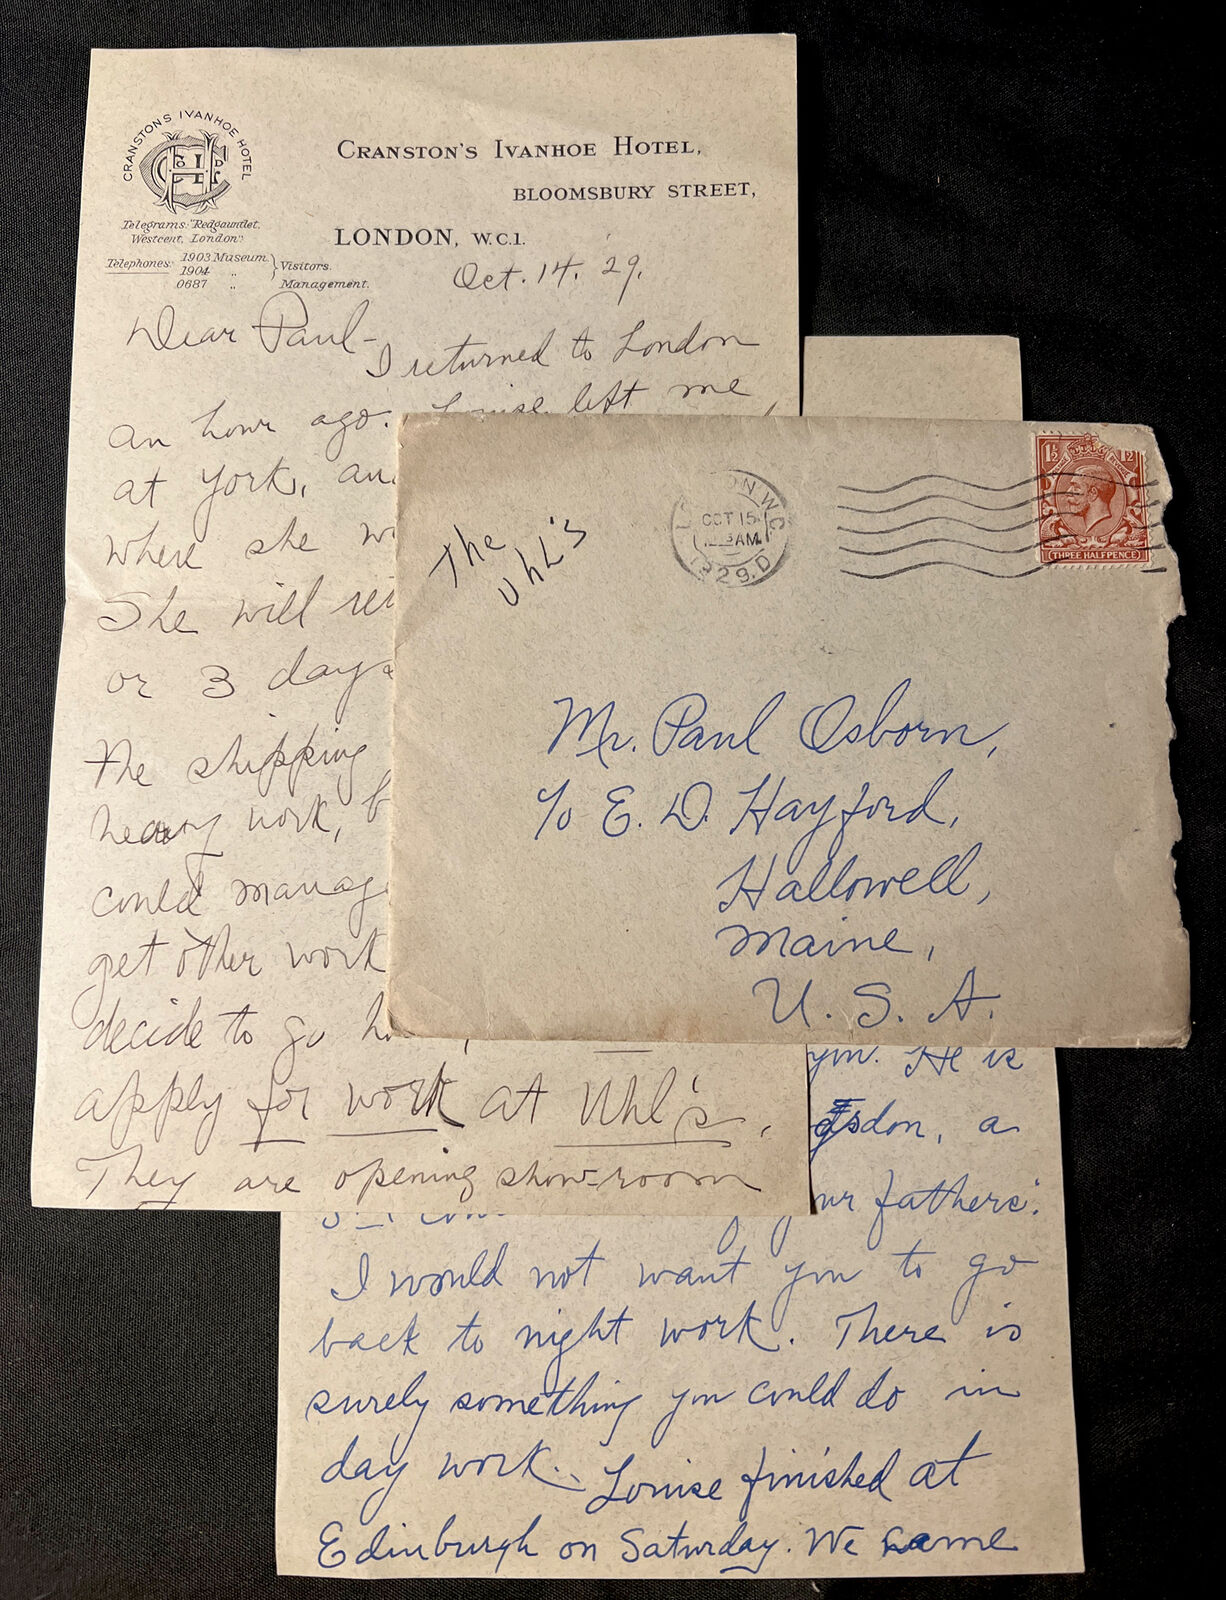 CRANSTON'S IVANHOE HOTEL
Telegrams: "Redgauntlet,
Westcent, London".
Telephones: 1903 Museum. } Visitors.
1904 "
0687 " Management.
CRANSTON'S IVANHOE HOTEL,
BLOOMSBURY STREET,
LONDON, W.C.1.
Oct. 14. '29.
Dear Paul-
I returned to London
an hour ago. Louise left me
at York, an
where she w
She will re
or 3 days
the shipping
heavy work, b
could manag
get other work
decide to go h
apply for work at Uhl's.
They are opening show-room
The
Uhl's
LONDON.W.C.
OCT 15
AM
1929.D
1½ 1½
THREE HALFPENCE
Mr. Paul Osborn,
c/o E. D. Hayford,
Hallowell,
Maine,
U. S. A.
you. He is
don, a
ur fathers'.
I would not want you to go
back to night work. There is
surely something you could do in
day work. Louise finished at
Edinburgh on Saturday. We came